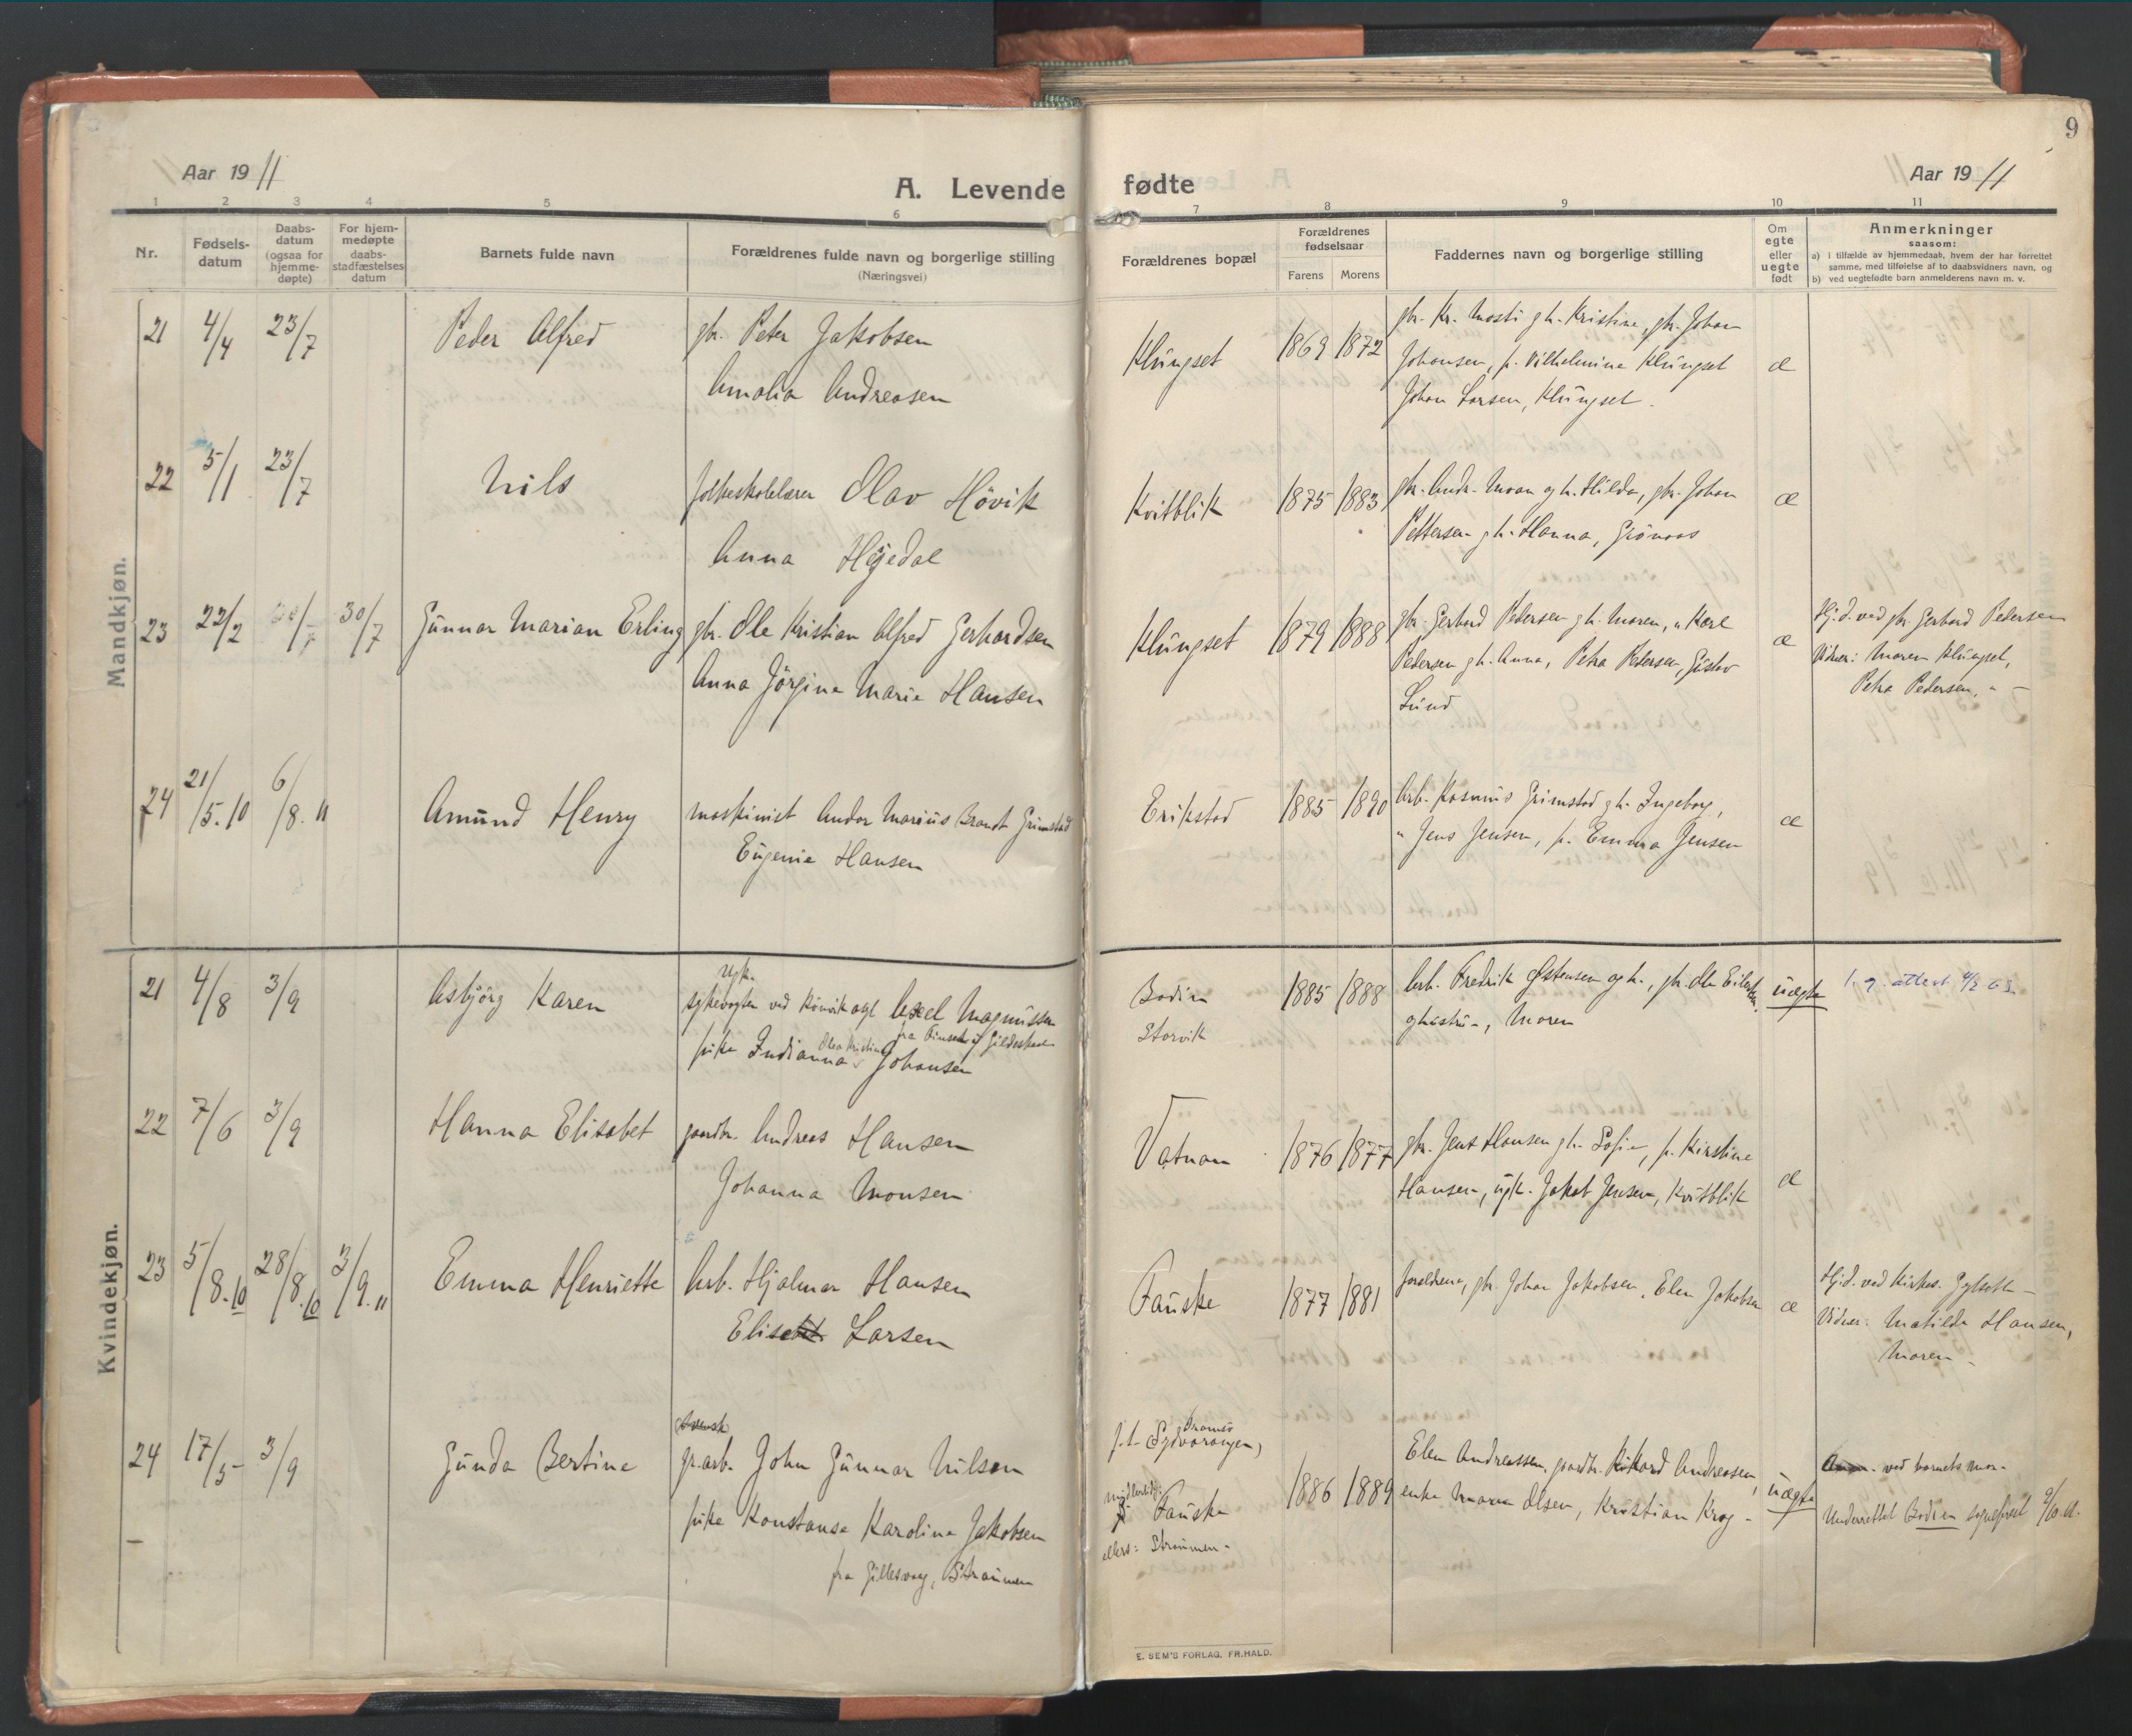 9
Aar 1911
A. Levende
fødte
Aar 1911
1 2 3 4 5 6 7 8 9 10 11
Nr.
Fødsels-
datum
Daabs-
datum
(ogsaa for
hjemme-
døpte)
For hjem-
medøpte
daabs-
stadfæstelses
datum
Barnets fulde navn
Forældrenes fulde navn og borgerlige stilling
(Næringsvei)
Forældrenes bopæl
Forældrenes
fødselsaar
Farens Morens
Faddernes navn og borgerlige stilling
Om
egte
eller
uegte
født
Anmerkninger
saasom:
a) i tilfælde av hjemmedaab, hvem der har forrettet
samme, med tilføielse af to daabsvidners navn, og
b) ved uegtefødte barn anmelderens navn m. v.
Mandkjøn.
21 4/4 23/7 Peder Alfred gbr. Peter Jakobsen
Amalia Andreasen
Klüngset 1869 1872
gbr. Kr. Mosti gh. Kristine, gbr. Johan
Johansen, p. Vilhelmine Klüngset
Johan Larsen, Klüngset.
æ
22 5/1 23/7 Nils folkeskolelærer Olav Hövik
Anna Hejedal
Kvitblik 1875 1883
gbr. Andr. Moan og h. Hilda, gbr. Johan
Pettersen gh. Hanna, Grönaas
æ
23 22/2 30/7 Günnar Marian Erling gbr. Ole Kristian Alfred Gerhardsen
Anna Jörgine Marie Hansen
Klüngset 1879 1888
gbr. Gerhard Pedersen gh. Maren, " Karl
Pedersen gh. Anna, Petra Pedersen, Güstav
Lünd
æ
Hj.d. ved gbr. Gerhard Pedersen
Vidner: Maren Klüngset,
Petra Pedersen, " -
24 21/5.10 6/8.11 Amünd Henry maskinist Andor Mariüs Brandt Grimstad
Eügenie Hansen
Erikstad 1885 1890
Arb. Rasmüs Grimstad gh. Ingeborg,
" Jens Jensen, p. Emma Jensen
æ
Kvindekjøn.
21 4/8 3/9 Asbjörg Karen
ugk.
sykevogter ved Rönvik asyl Axel Magnüssen
pike Indianna Olea Kristine Johansen
Bodin
Storvik
1885 1888
Arb. Fredrik Östensen og h., gbr. Ole Eilertsen
og hüstrü, Moren
üægte
22 7/6 3/9 Hanna Elisabet gaardbr. Andreas Hansen
Johanna Monsen
Vatnan 1876 1877
gbr. Jens Hansen gh. Sofie, p. Kirstine
Hansen, ügk. Jakob Jensen, Kvitblik
æ
23 5/8.10 28/8.10 3/9.11 Emma Henriette Arb. Hjalmar Hansen
Elisabet Larsen
Faüske 1877 1881
forældrene, gbr. Johan Jakobsen, Elen Jakobsen
æ
Hj.d. ved kirkes.
Vidner: Matilda Hansen,
Moren
24 17/5 3/9 Günda Bertine
gr.arb. John Günnar Nilsen
pike Konstanse Karoline Jakobsen
fra Gillesvaag, Straümen
f.t. Sydvaranger,
Faüske
ellers: Straümen
1886 1889
Elen Andreassen, gaardbr. Rikard Andreasen,
enke Maren Olsen, Kristian Krog -
üægte
ved barnets mor.
Underrettet Bodin sogneprest 9/10.11.
E. SEM'S FORLAG, FR.HALD.